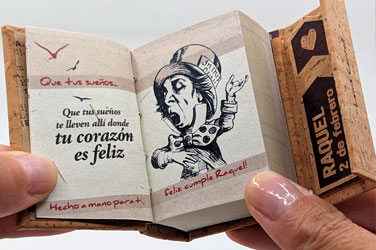 Que tus sueños...
Que tus sueños
te lleven allí donde
tu corazón
es feliz
Hecho a mano para ti.
feliz cumple Raquel!
RAQUEL
2 de febrero